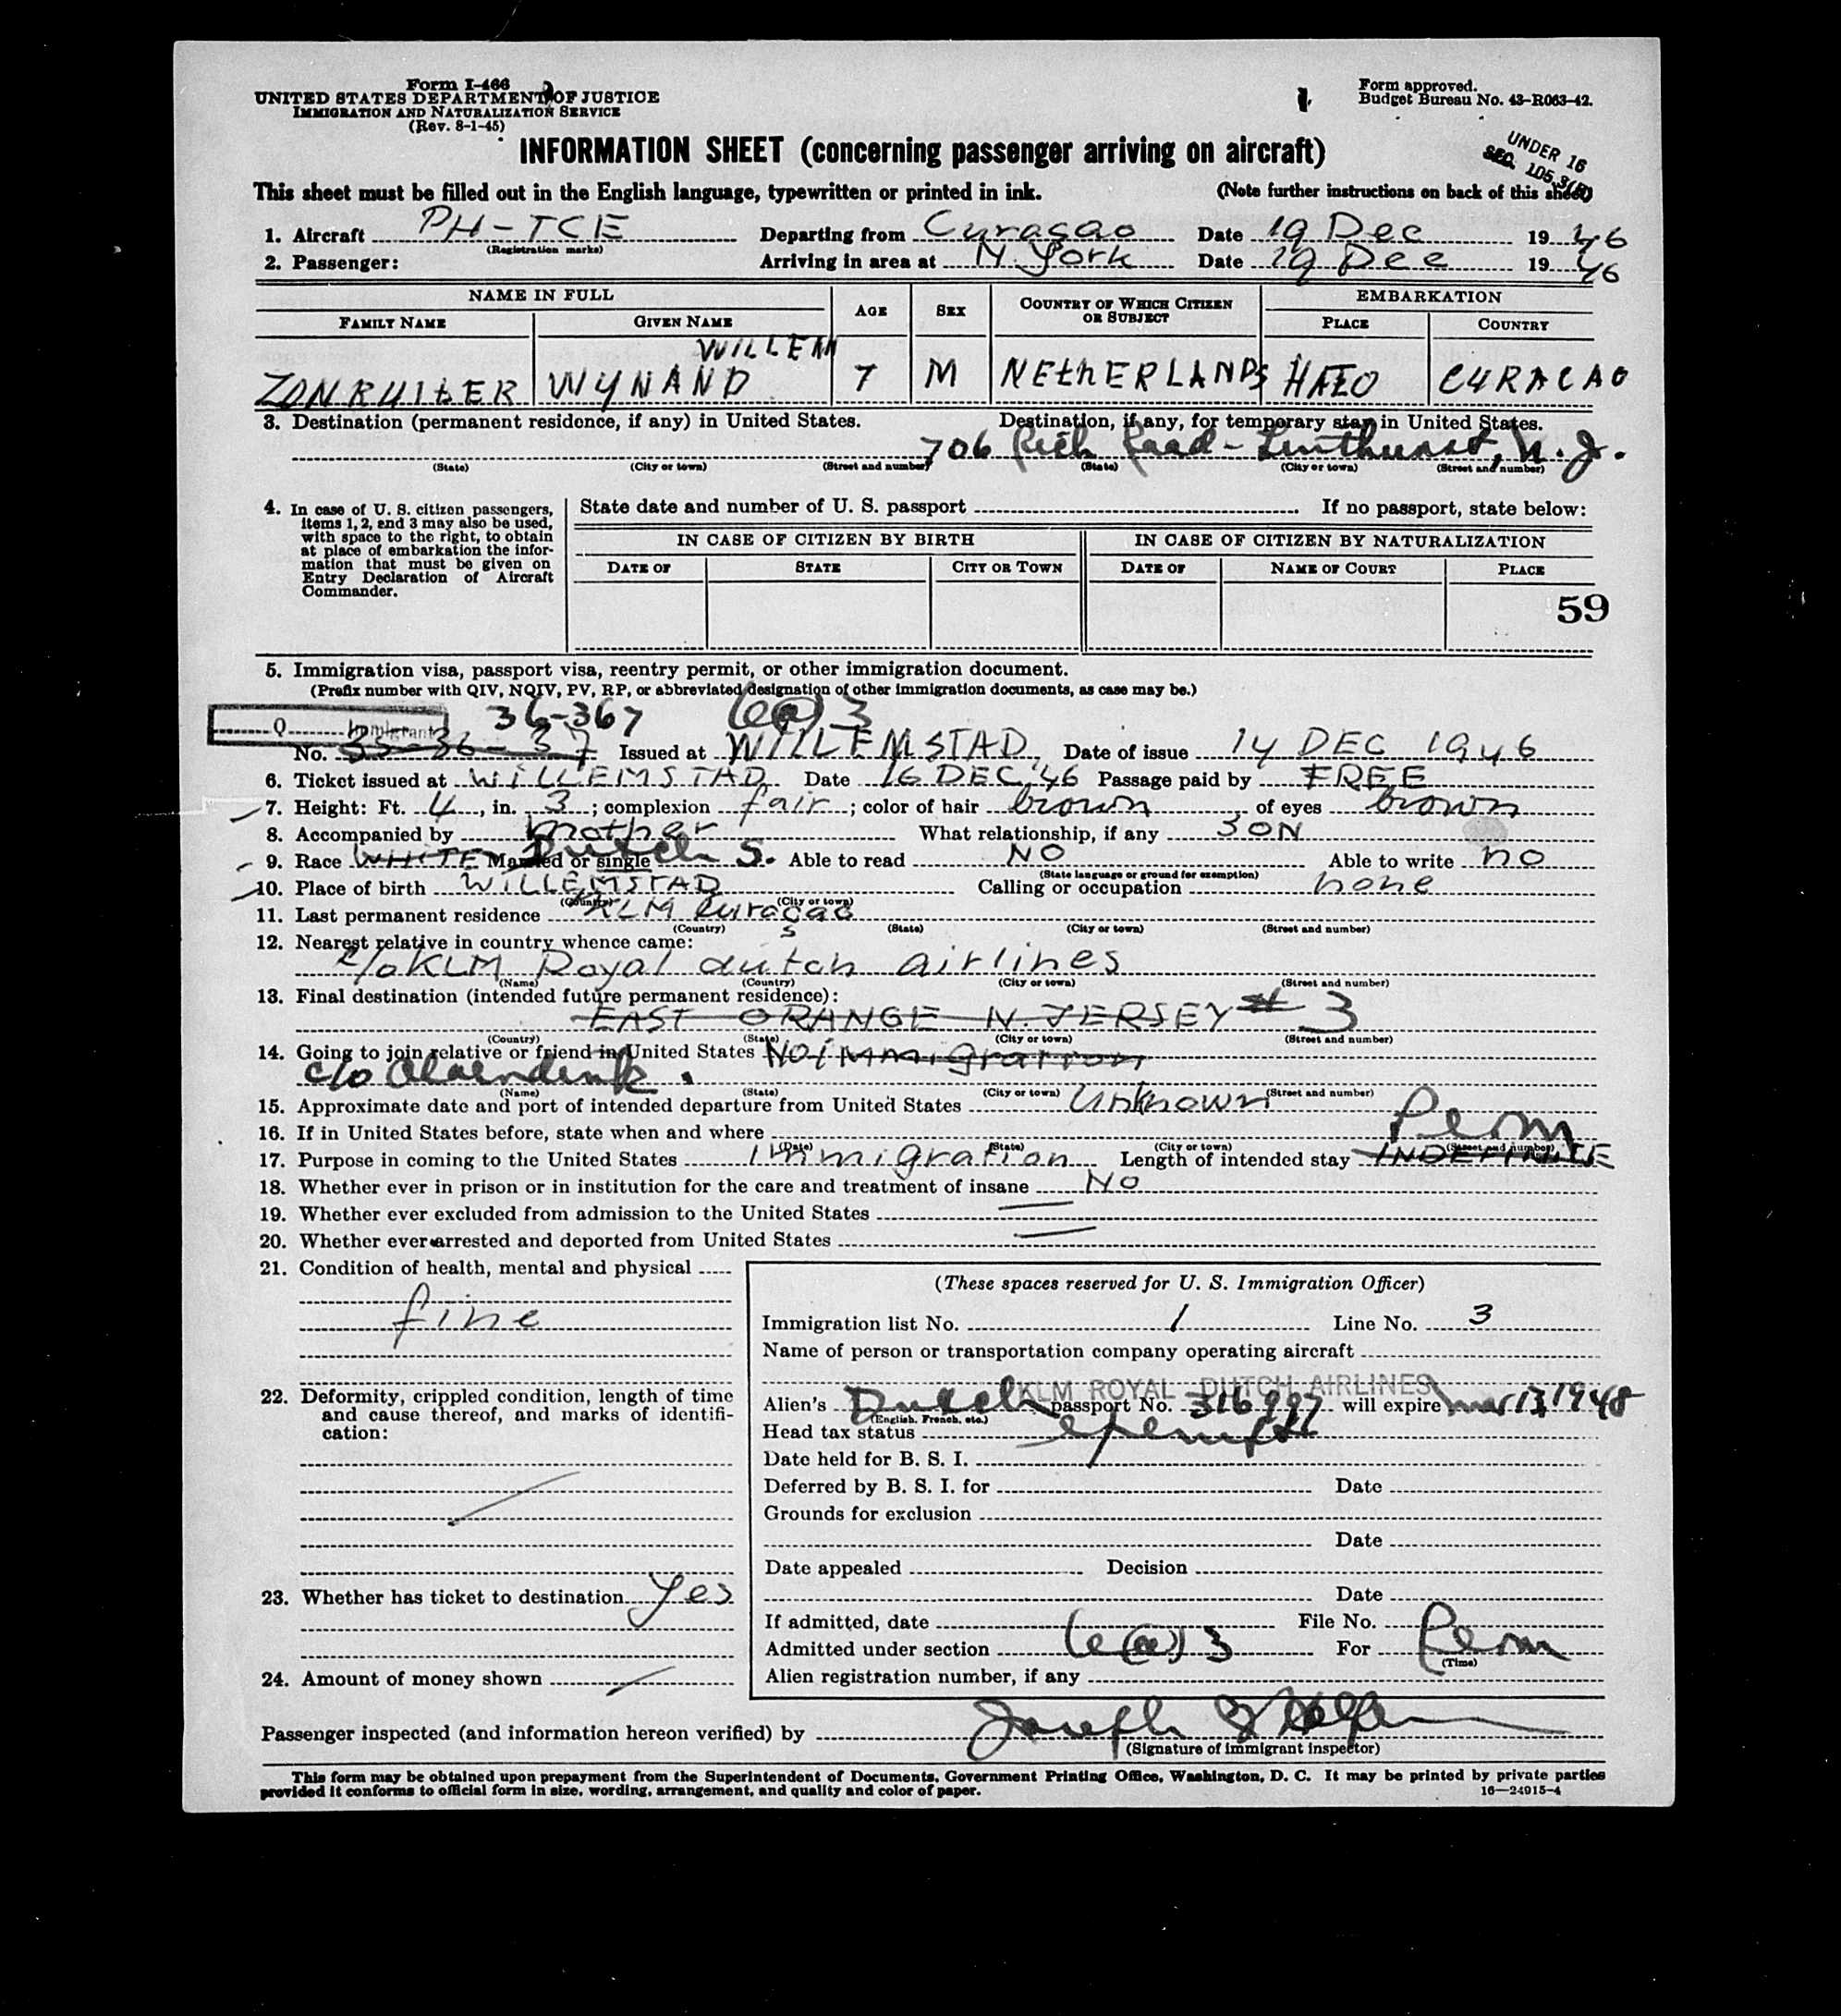 Form I-466
UNITED STATES DEPARTMENT OF JUSTICE
IMMIGRATION AND NATURALIZATION SERVICE
(Rev. 8-1-45)
Form approved.
Budget Bureau No. 43-R063-42.
INFORMATION SHEET (concerning passenger arriving on aircraft)
UNDER 16
SEC. 105.3(B)
This sheet must be filled out in the English language, typewritten or printed in ink. (Note further instructions on back of this sheet)
1. Aircraft PH-TCE Departing from Curaçao Date 19 Dec 1946
(Registration marks)
2. Passenger: Arriving in area at N. York Date 19 Dec 1946
NAME IN FULL AGE SEX COUNTRY OF WHICH CITIZEN OR SUBJECT EMBARKATION
FAMILY NAME GIVEN NAME PLACE COUNTRY
WILLEM
ZONRUITER WYNAND 7 M NETHERLANDS HATO CURACAO
3. Destination (permanent residence, if any) in United States. Destination, if any, for temporary stay in United States.
706 Rich Road - Linthurst, N.J.
(State) (City or town) (Street and number) (State) (City or town) (Street and number)
4. In case of U. S. citizen passengers, items 1, 2, and 3 may also be used, with space to the right, to obtain at place of embarkation the information that must be given on Entry Declaration of Aircraft Commander.
State date and number of U. S. passport If no passport, state below:
IN CASE OF CITIZEN BY BIRTH IN CASE OF CITIZEN BY NATURALIZATION
DATE OF STATE CITY OR TOWN DATE OF NAME OF COURT PLACE
59
5. Immigration visa, passport visa, reentry permit, or other immigration document.
(Prefix number with QIV, NQIV, PV, RP, or abbreviated designation of other immigration documents, as case may be.)
Q Immigrant 36-367 6(a)3
No. 35-36-37 Issued at WILLEMSTAD Date of issue 14 DEC 1946
6. Ticket issued at WILLEMSTAD Date 16 DEC '46 Passage paid by FREE
7. Height: Ft. 4, in. 3; complexion fair; color of hair brown of eyes brown
8. Accompanied by mother What relationship, if any SON
9. Race WHITE Dutch Married or single S. Able to read NO Able to write no
(State language or ground for exemption)
10. Place of birth WILLEMSTAD Calling or occupation none
(Country) (City or town)
11. Last permanent residence KLM Curaçao
(Country) (State) (City or town) (Street and number)
12. Nearest relative in country whence came:
c/o KLM Royal dutch airlines
(Name) (Country) (City or town) (Street and number)
13. Final destination (intended future permanent residence):
EAST ORANGE N. JERSEY # 3
(Country) (State) (City or town) (Street and number)
14. Going to join relative or friend in United States NO immigration
c/o
(Name) (State) (City or town) (Street and number)
15. Approximate date and port of intended departure from United States Unknown
16. If in United States before, state when and where Perm
(Date) (State) (City or town) (Street and number)
17. Purpose in coming to the United States Immigration Length of intended stay INDEFINITE
18. Whether ever in prison or in institution for the care and treatment of insane NO
19. Whether ever excluded from admission to the United States
20. Whether ever arrested and deported from United States
21. Condition of health, mental and physical
fine
22. Deformity, crippled condition, length of time and cause thereof, and marks of identification:
23. Whether has ticket to destination Yes
24. Amount of money shown
(These spaces reserved for U. S. Immigration Officer)
Immigration list No. 1 Line No. 3
Name of person or transportation company operating aircraft
KLM ROYAL DUTCH AIRLINES
Alien's Dutch passport No. 316997 will expire Mar 13, 1948
(English, French, etc.)
Head tax status exempt
Date held for B. S. I.
Deferred by B. S. I. for Date
Grounds for exclusion
Date
Date appealed Decision
Date
If admitted, date File No.
Admitted under section 6(a)3 For Perm
(Time)
Alien registration number, if any
Passenger inspected (and information hereon verified) by Joseph
(Signature of immigrant inspector)
This form may be obtained upon prepayment from the Superintendent of Documents, Government Printing Office, Washington, D. C. It may be printed by private parties
provided it conforms to official form in size, wording, arrangement, and quality and color of paper. 16—24915-4